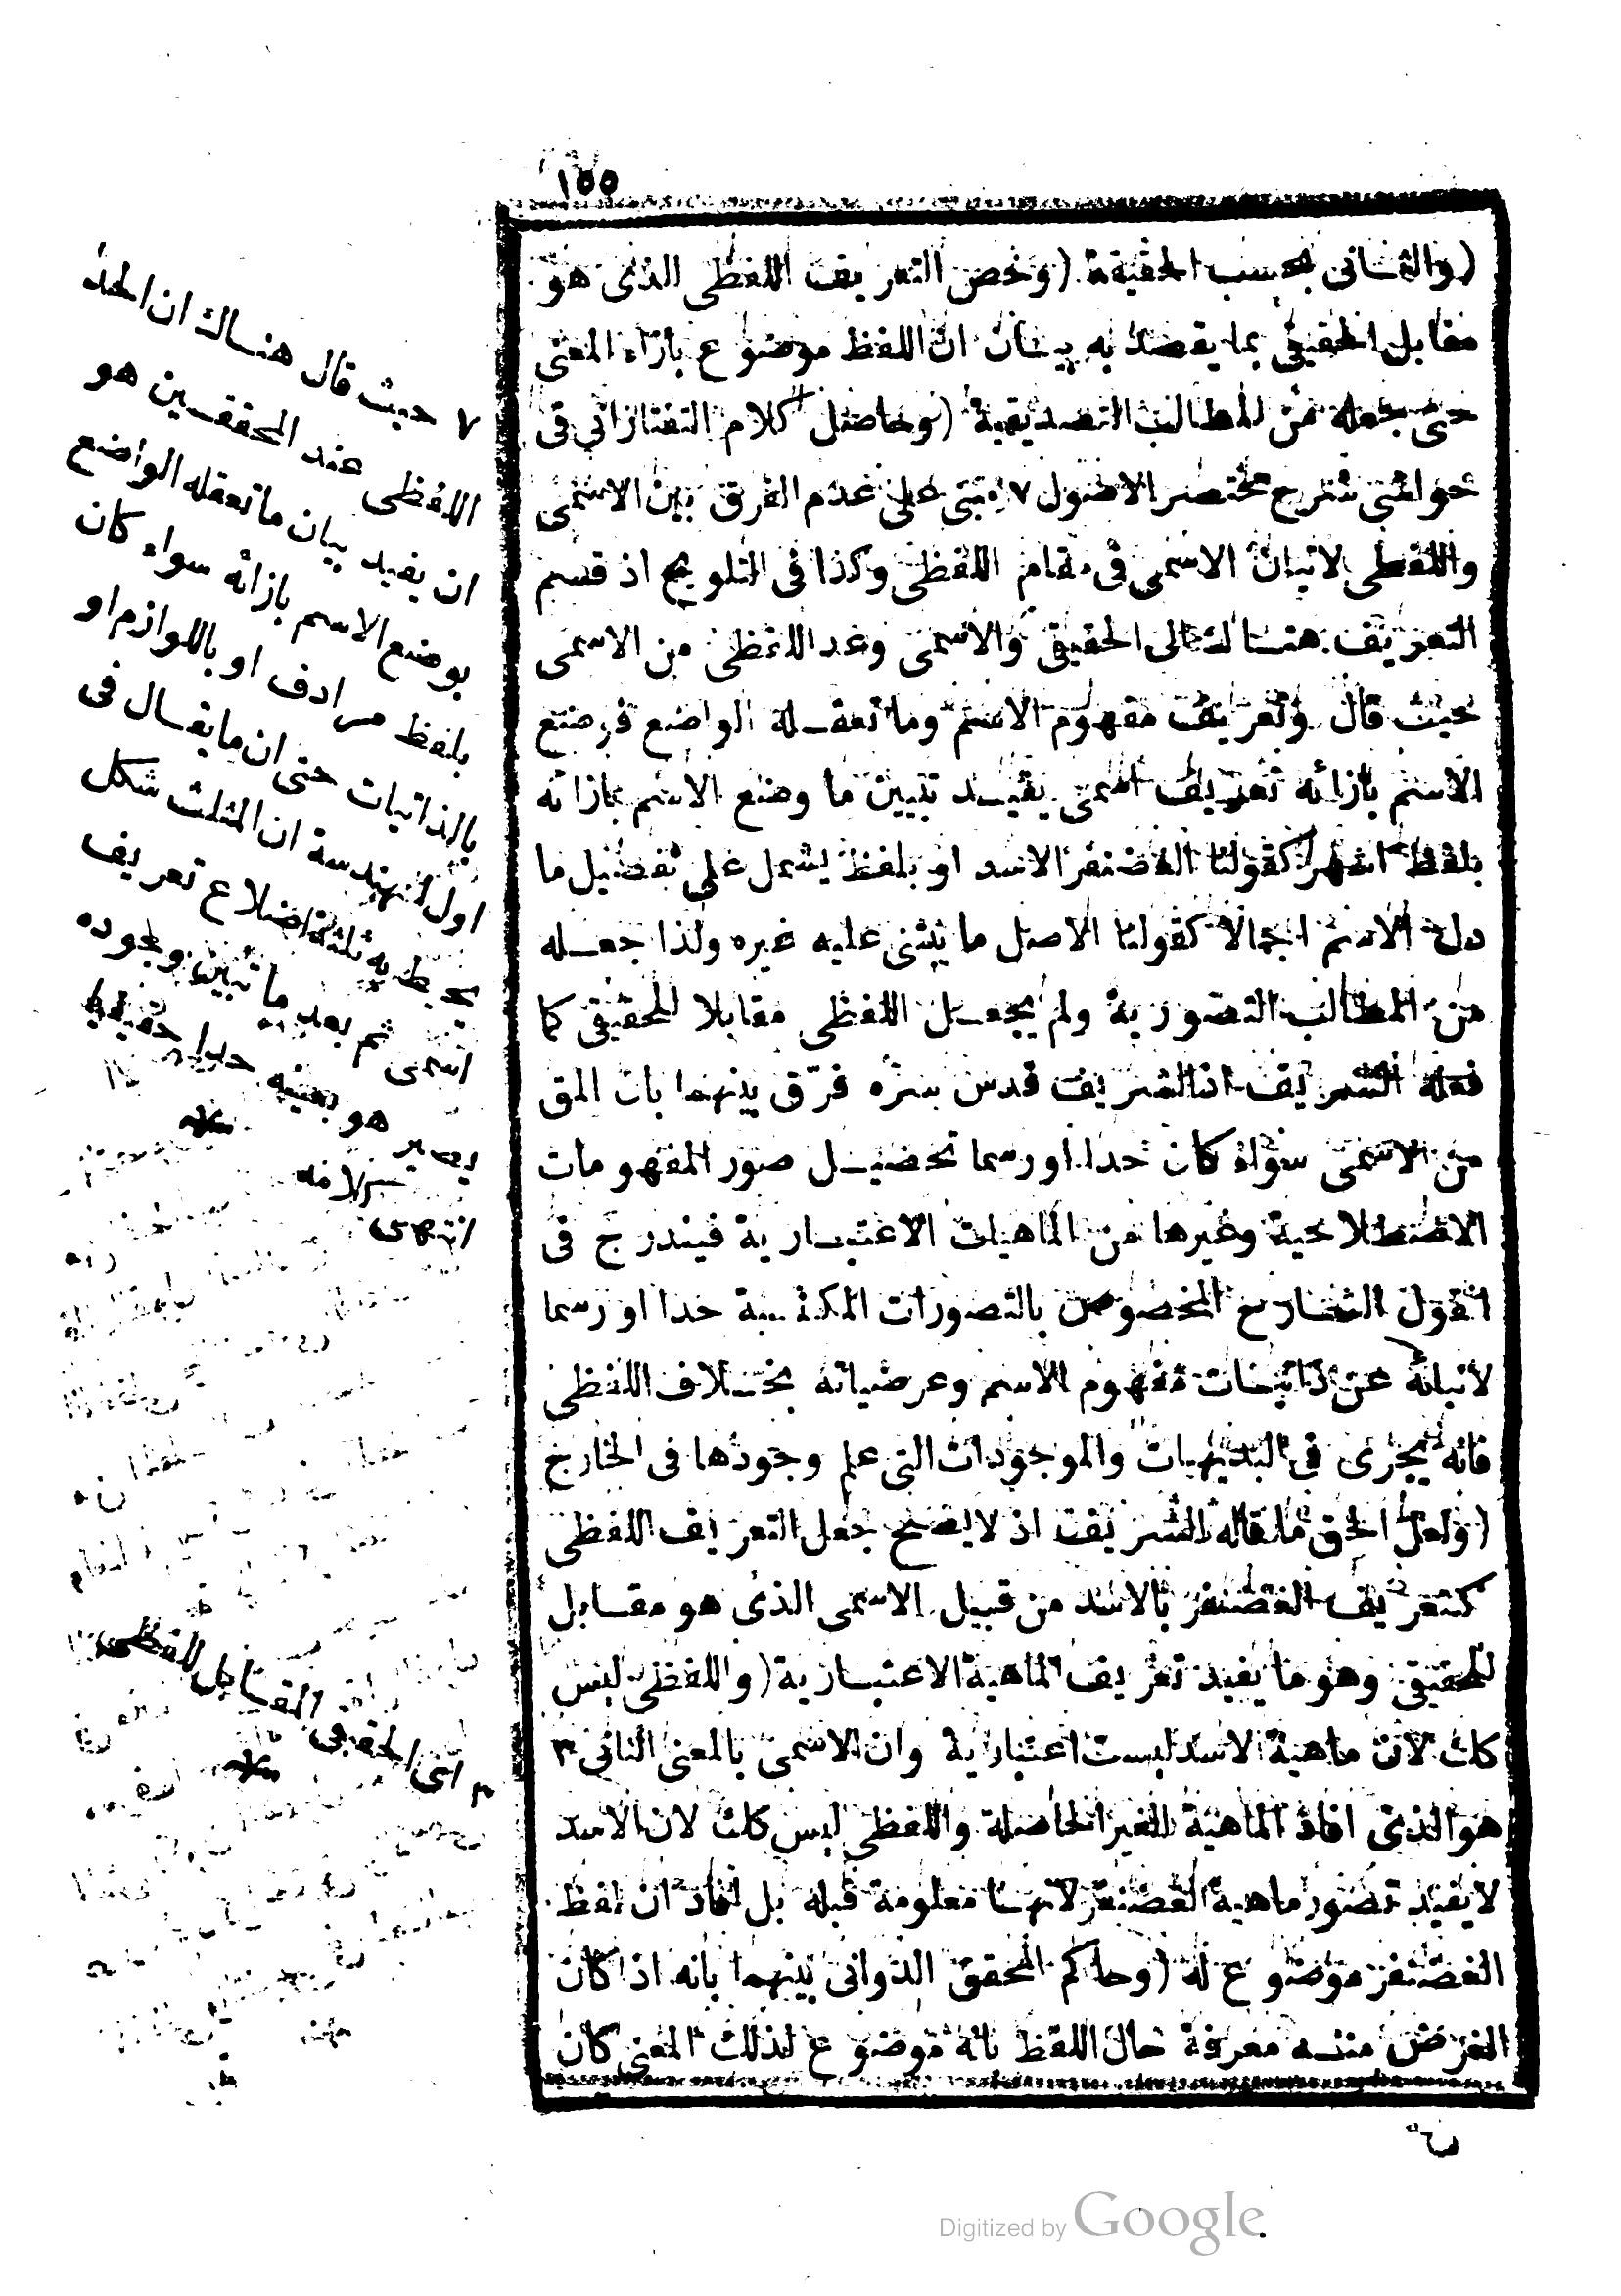 ١٥٥
(والثانى بحسب الحقيقة (وخص التعريف اللفظى الذى هو
مقابل الحقيقى بما يقصد به بيان ان اللفظ موضوع بازاء المعنى
حتى جعله من المطالب التصديقية (وحاصل كلام التفتازانى فى
حواشى شرح مختصر الاصول ٧ يبتنى على عدم الفرق بين الاسمى
واللفظى لاتيان الاسمى فى مقام اللفظى وكذا فى التلويح اذ قسم
التعريف هناك الى الحقيقى والاسمى وعد اللفظى من الاسمى
حيث قال وتعريف مفهوم الاسم وما تعقله الواضع فوضع
الاسم بازائه تعريف اسمى يفيد تبيين ما وضع الاسم بازائه
بلفظ اشهر كقولنا الغضنفر الاسد او بلفظ يشمل على تفصيل ما
دل الاسم اجمالا كقولنا الاصل ما يبتنى عليه غيره ولذا جعله
من المطالب التصورية ولم يجعل اللفظى مقابلا للحقيقى كما
فعله الشريف اذ الشريف قدس سره فرق بينهما بان المق
من الاسمى سواء كان حدا او رسما تحصيل صور المفهومات
الاصطلاحية وغيرها من الماهيات الاعتبارية فيندرج فى
القول الشارح المخصوص بالتصورات المكتسبة حدا او رسما
لانبائه عن ذاتيات مفهوم الاسم وعرضياته بخلاف اللفظى
فانه يجرى فى البديهيات والموجودات التى علم وجودها فى الخارج
(ولعل الحق ما قاله الشريف اذ لا يصح جعل التعريف اللفظى
كتعريف الغضنفر بالاسد من قبيل الاسمى الذى هو مقابل
للحقيقى وهو ما يفيد تعريف الماهية الاعتبارية (واللفظى ليس
كك لان ماهية الاسد ليست اعتبارية وان الاسمى بالمعنى الثانى ٣
هو الذى افاد الماهية الغير الحاصلة واللفظى ليس كك لان الاسد
لا يفيد تصور ماهية الغضنفر لانها معلومة قبله بل افاد ان لفظ
الغضنفر موضوع له (وحاكم المحقق الدوانى بينهما بانه اذا كان
الغرض منه معرفة حال اللفظ بانه موضوع لذلك المعنى كان
٧ حيث قال هناك ان الحد
اللفظى عند المحققين هو
ان يفيد بيان ما تعقله الواضع
بوضع الاسم بازائه سواء كان
بلفظ مرادف او باللوازم او
بالذاتيات حتى ان ما يقال فى
اول الهندسة ان المثلث شكل
يحيط به ثلثة اضلاع تعريف
اسمى ثم بعد ما تبين وجوده
يصير هو بعينه حدا حقيقيا
انتهى كلامه
منه
اى الحقيقى المقابل للفظى
منه
Digitized by Google